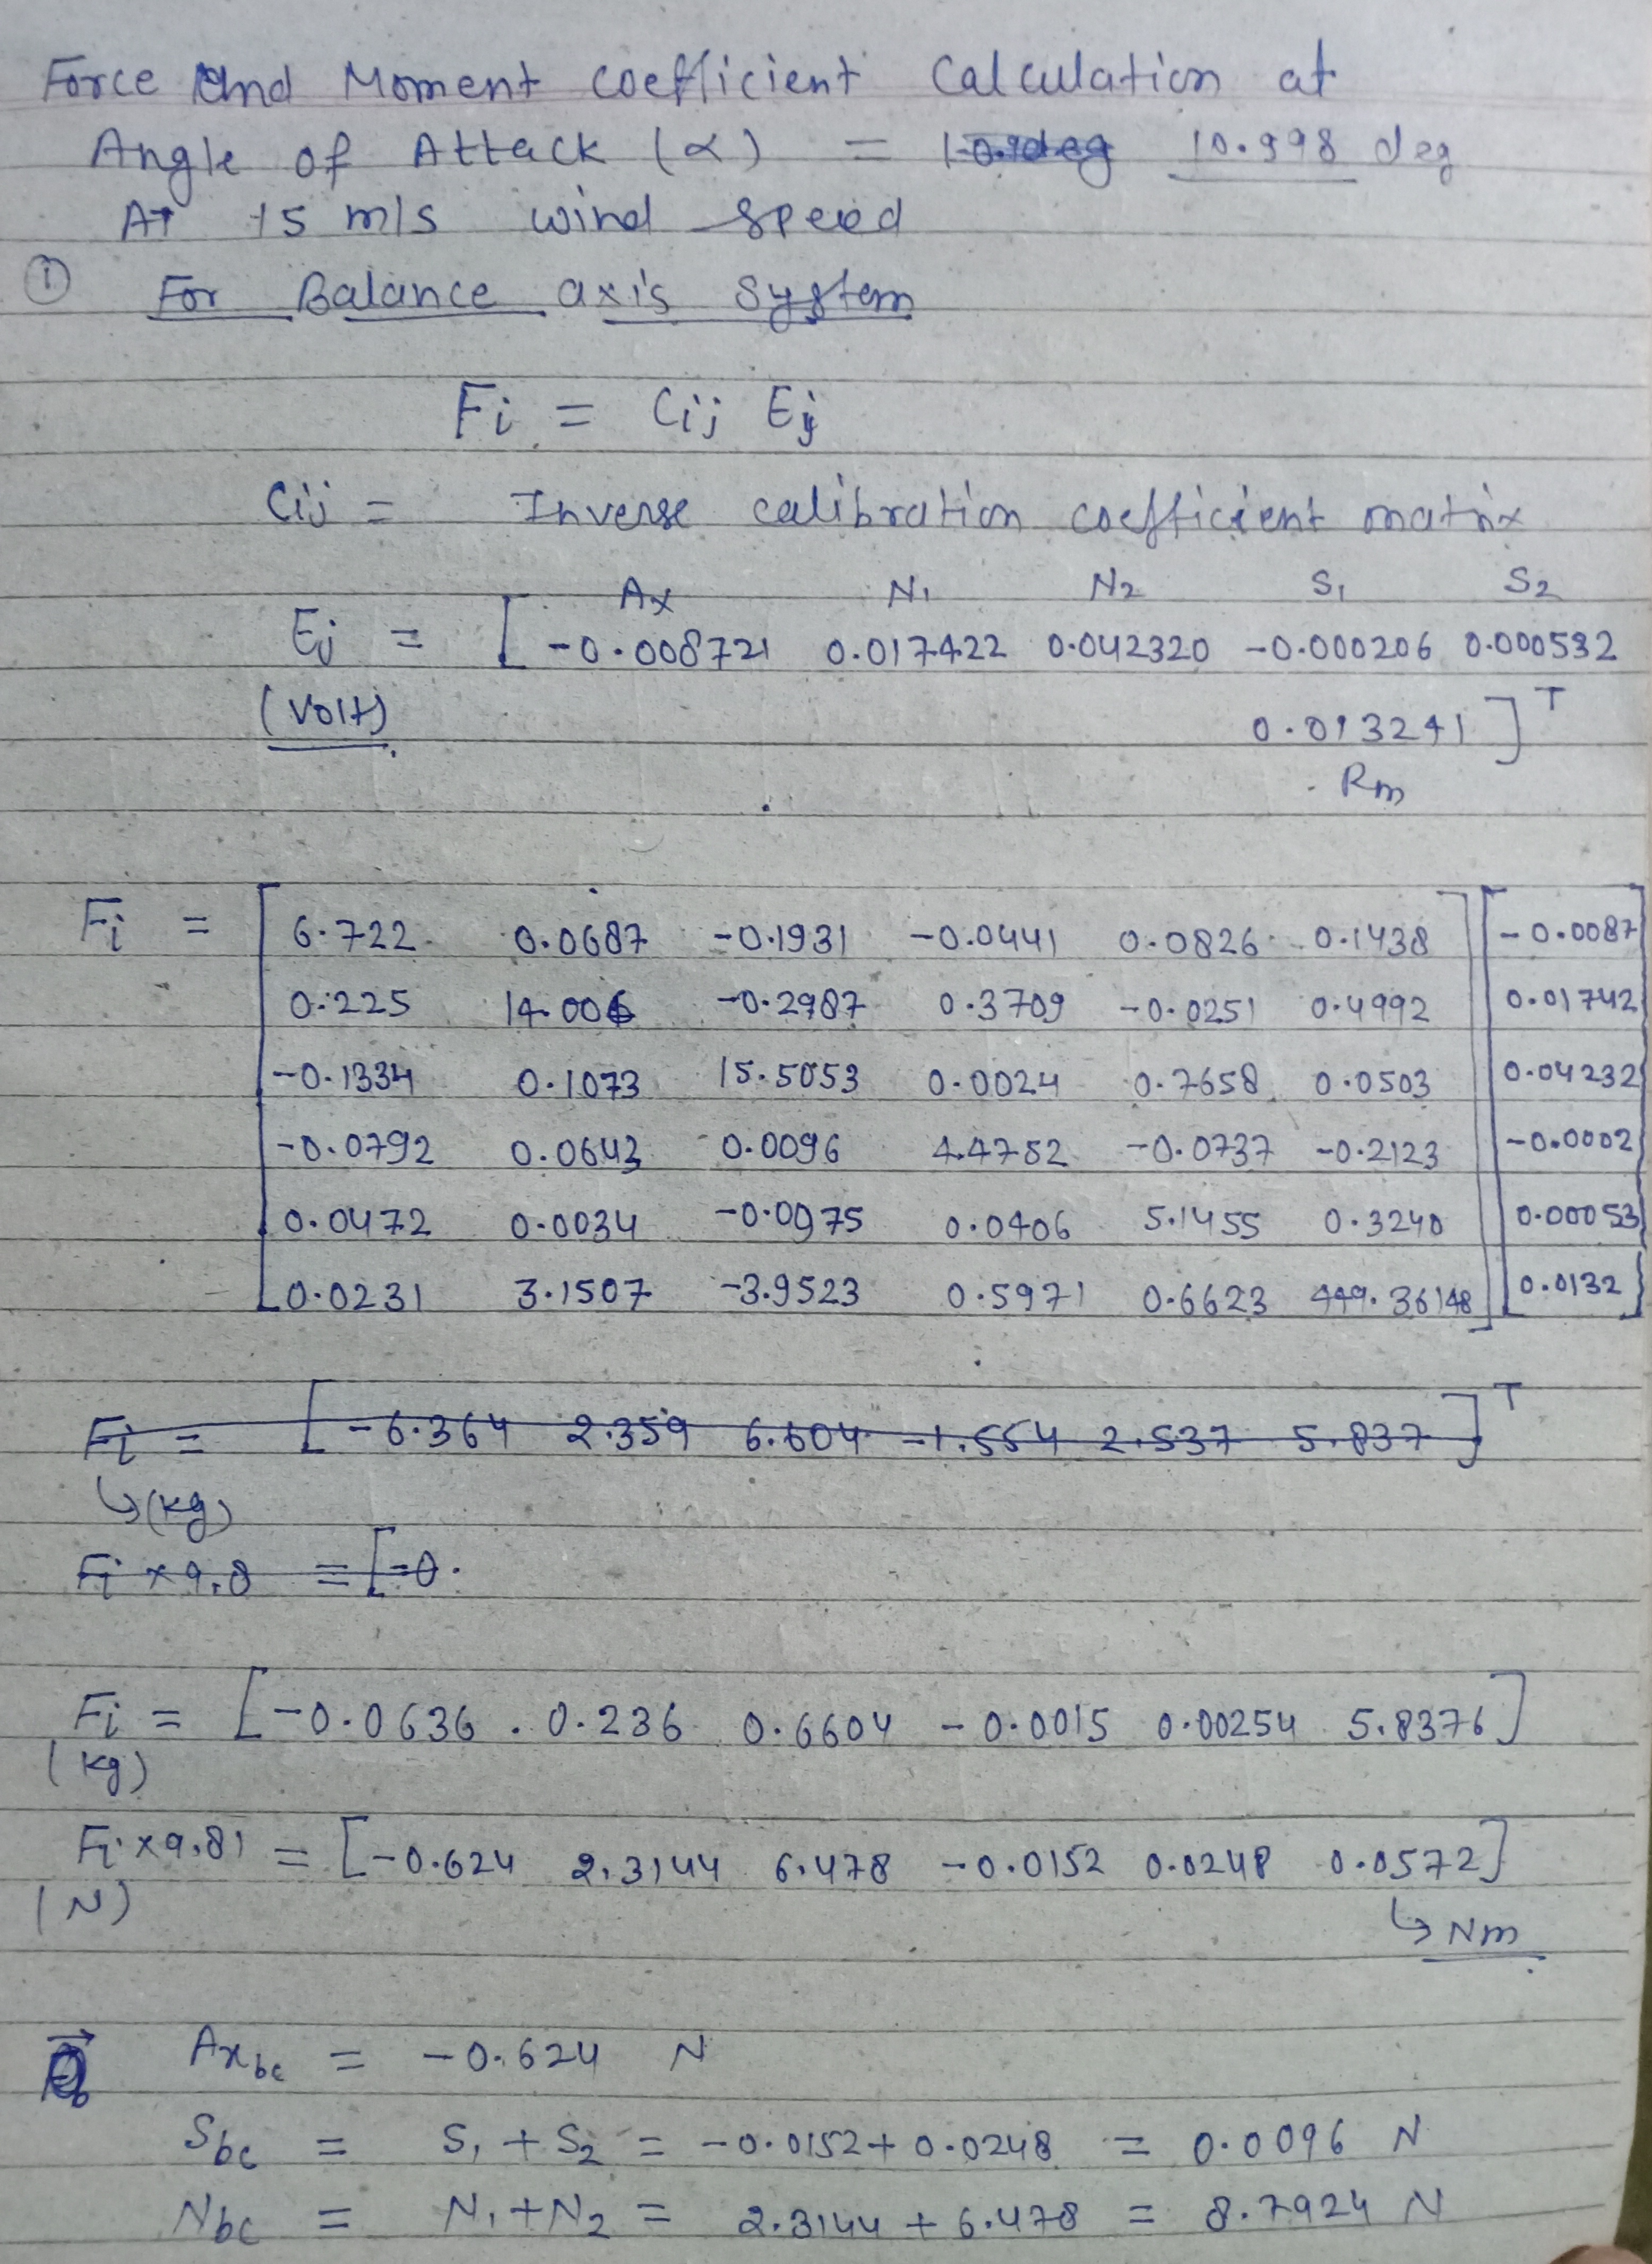 Force and Moment coefficient Calculation at
Angle of Attack (α) = 10.998 deg
At 15 m/s wind speed
① For Balance axis system
Fi = Cij Ej
Cij = Inverse calibration coefficient matrix
Ax N1 N2 S1 S2
Ej = [ -0.008721 0.017422 0.042320 -0.000206 0.000532
(Volt) 0.013241 ]T
Rm
Fi = [ 6.722 0.0687 -0.1931 -0.0441 0.0826 0.1438 ] [ -0.0087
0.225 14.006 -0.2987 0.3709 -0.0251 0.4992 0.01742
-0.1334 0.1073 15.5053 0.0024 0.7658 0.0503 0.04232
-0.0792 0.0643 0.0096 4.4752 -0.0737 -0.2123 -0.0002
0.0472 0.0034 -0.0975 0.0406 5.1455 0.3240 0.00053
0.0231 3.1507 -3.9523 0.5971 0.6623 449.36148 0.0132 ]
Fi = [ -6.364 2.359 6.604 -1.554 2.537 5.837 ]T
↳(kg)
Fi × 9.8 = [-0.
Fi = [ -0.0636 . 0.236 0.6604 -0.0015 0.00254 5.8376 ]
(kg)
Fi × 9.81 = [ -0.624 2.3144 6.478 -0.0152 0.0248 0.0572 ]
(N) ↳ Nm
Axbc = -0.624 N
Sbc = S1 + S2 = -0.0152 + 0.0248 = 0.0096 N
Nbc = N1 + N2 = 2.3144 + 6.478 = 8.7924 N